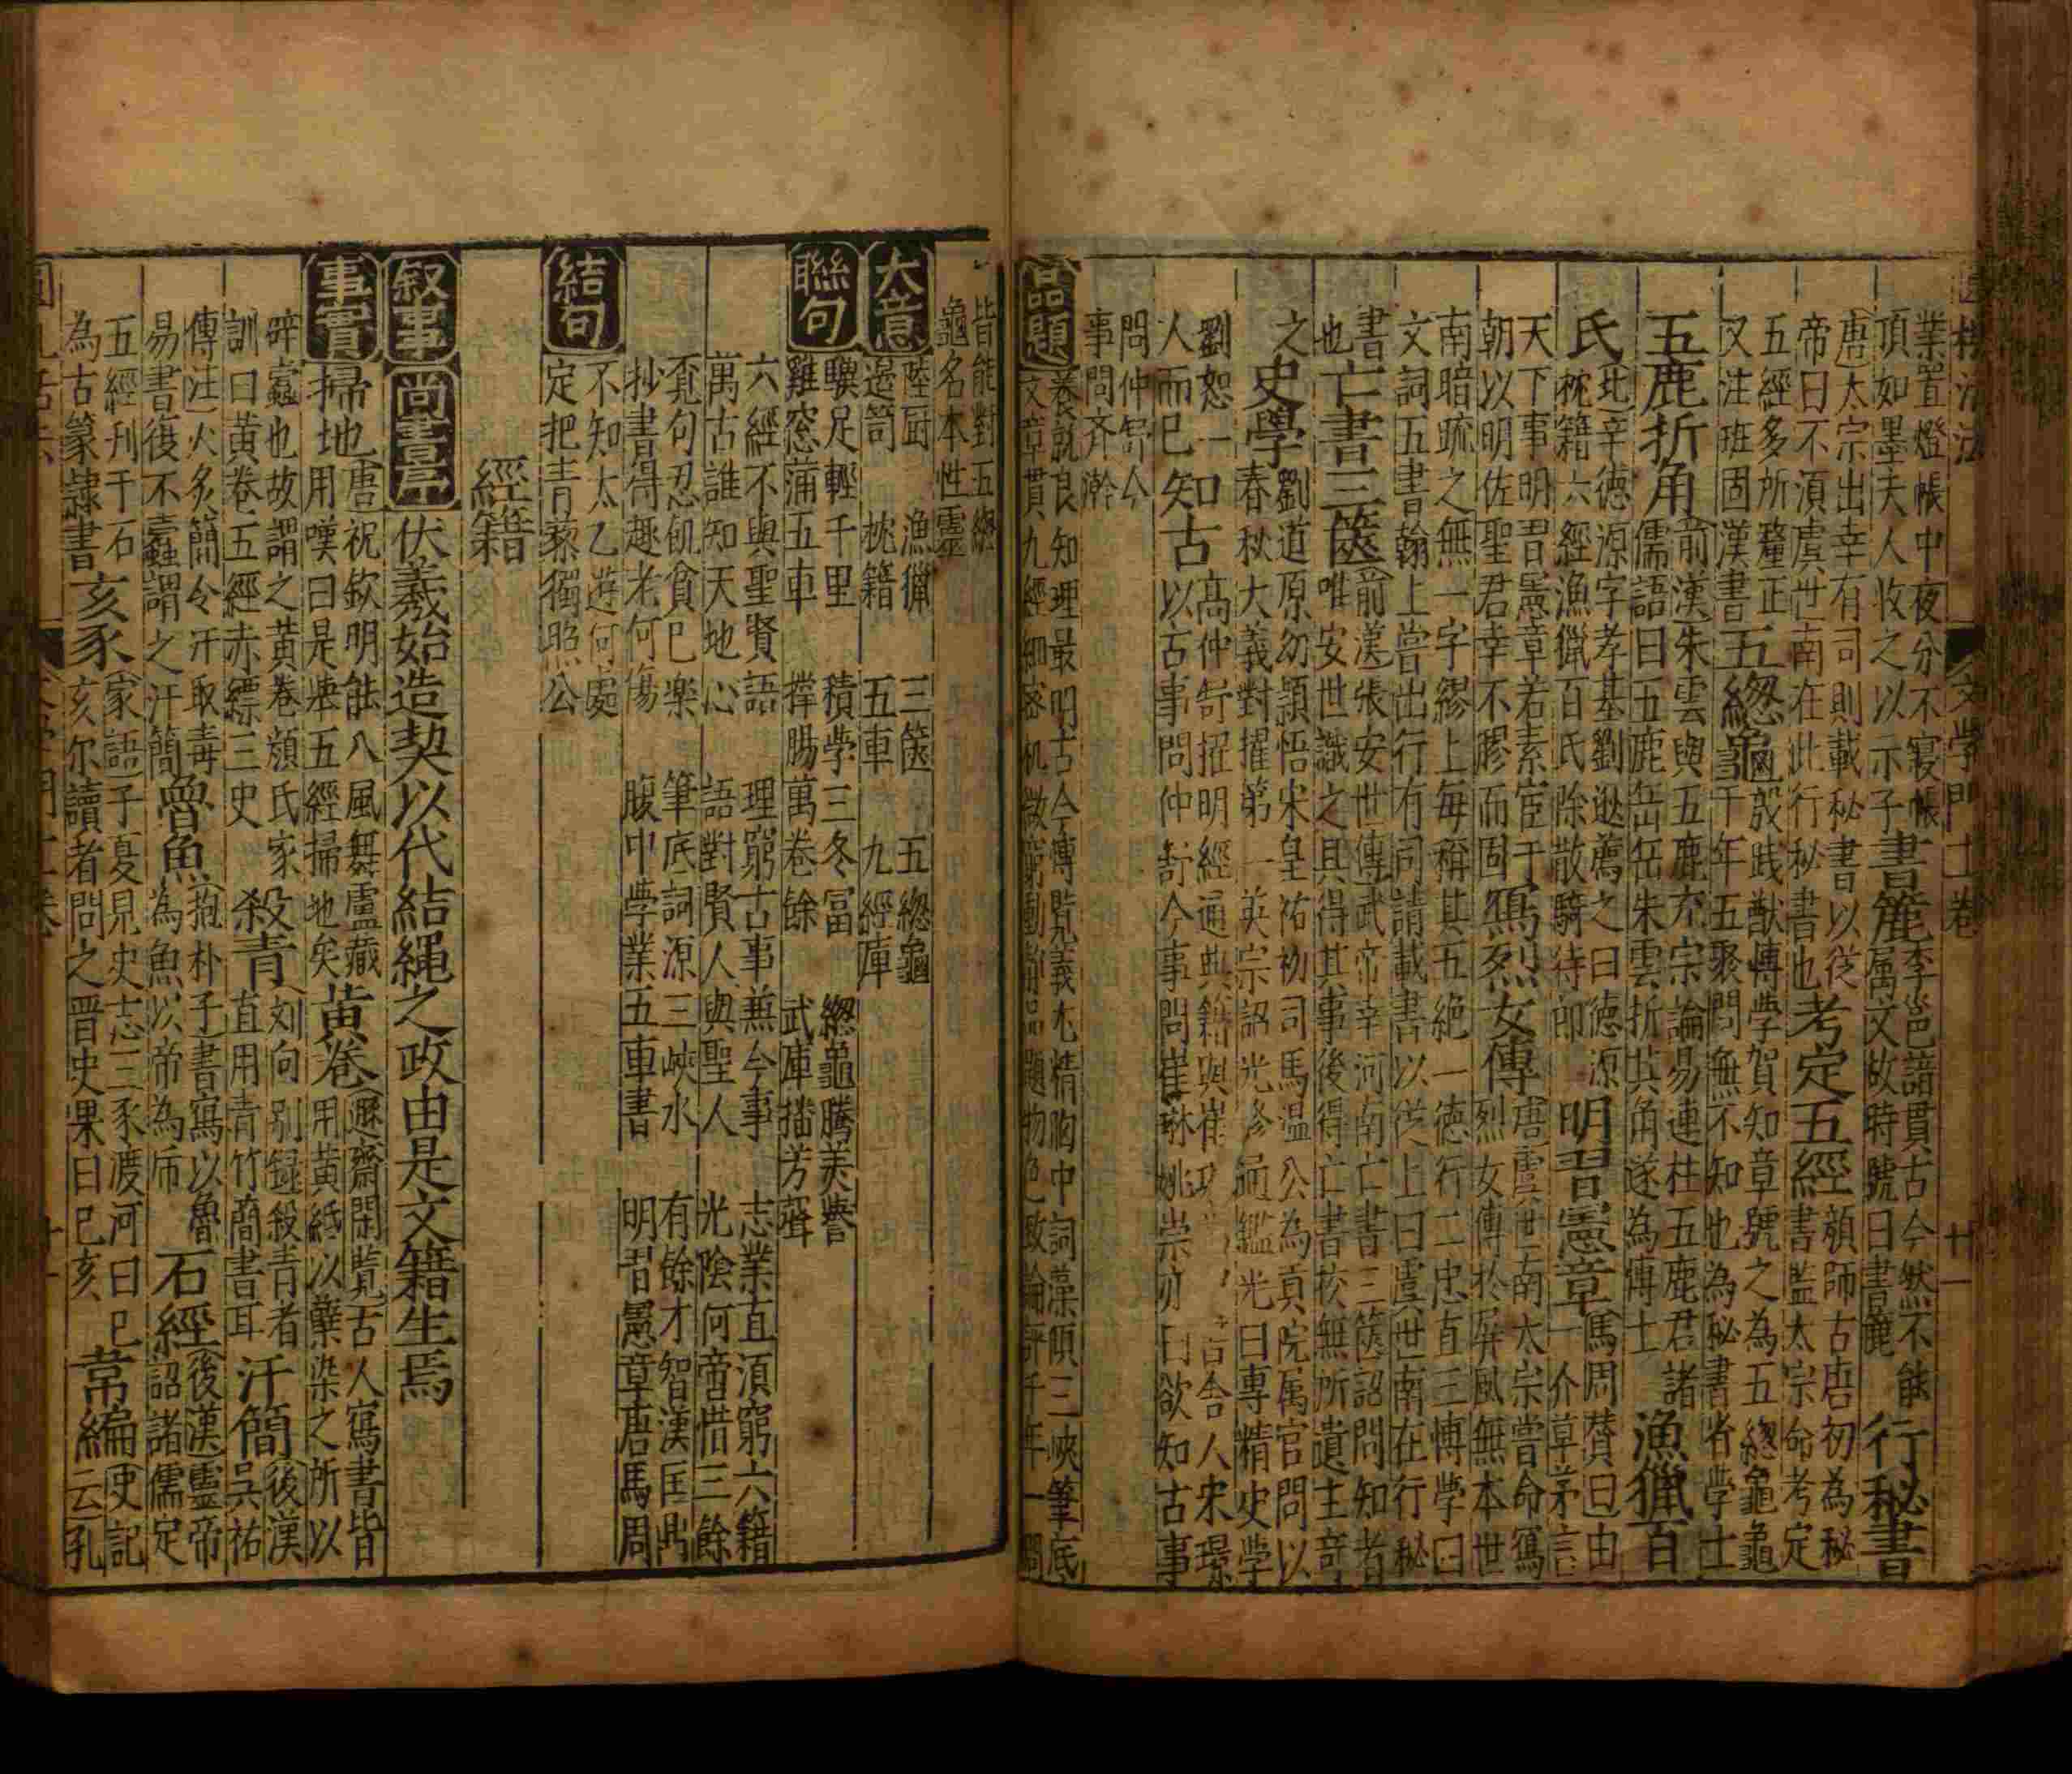 業置燈帳中夜分不寢帳
頂如墨夫人收之以示子
書簏
李邕諳貫古今然不能
属文故時號曰書簏
行秘書
唐太宗出幸有司則載秘書以従
帝曰不湏虞世南在此行秘書也
考定五經
顔師古唐初為秘
書監太宗命考定
五經多所釐正
又注班固漢書
五緫龜
殷践猷愽學賀知章號之為五緫龜龜
千年五聚問無不知也為秘書省學士
五鹿折角
前漢朱雲與五鹿充宗論易連柱五鹿君諸
儒語曰五鹿岳岳朱雲折其角遂為愽士
漁獵百
氏
北辛徳源字孝基劉逖薦之曰徳源
枕籍六經漁獵百氏除散騎侍郎
明習憲章
馬周賛曰由
一介草茅言
天下事明習憲章若素宦于
朝以明佐聖君幸不膠而固
寫烈女傳
唐虞世南太宗嘗命寫
烈女傳於屏風無本世
南暗疏之無一字繆上每稱其五絕一徳行二忠直三愽學曰
文詞五書翰上嘗出行有司請載書以従上曰虞世南在行秘
書
也
亡書三篋
前漢張安世傳武帝幸河南亡書三篋詔問知者
唯安世識之具得其事後得亡書挍無所遺主竒
之
史學
劉道原幼頴悟宋皇祐初司馬温公為貢院属官問以
春秋大義對擢第一英宗詔光修通鑑光曰專精史學
劉恕一
人而已
知古
髙仲舒擢明經通典籍與崔
以古事問仲舒今事問崔琳姚崇
舎人宋璟
曰欲知古事
問仲舒今
事問齐澣
品題
知理最明古今愽覧
義尤精胸中詞藻傾三峽筆底
文章貫九經細密机微窮動
品題物色致論評千年一
皆能對五緫
龜名本性靈
大意
陸厨 漁獵 三篋 五緫龜
邉笥 枕籍 五車 九經庫
聮句
驥足輕千里 積學三冬冨 緫龜騰美譽
雞窓蒲五車 撑腸萬卷餘 武庫播芳聲
六經不與聖賢語 理窮古事兼今事 志業直湏窮六籍
萬古誰知天地心 語對賢人與聖人 光陰何啻惜三餘
覔句忍飢貪已樂 筆底詞源三峽水 有餘才智漢匡鼎
抄書得趣老何傷 腹中學業五車書 明習憲章唐馬周
結句
不知太乙遊何處
定把青藜獨照公
經籍
叙事
尚書序
伏羲始造契以代結繩之政由是文籍生焉
事實
掃地
唐祝欽明能八風舞盧藏
用嘆曰是舉五經掃地矣
黄卷
遯齋閑覧古人寫書皆
用黄紙以蘗染之所以
辟蠧也故謂之黄卷顔氏家
訓曰黄卷五經赤縹三史
殺青
刘向别録殺青者
直用青竹簡書耳
汗簡
後漢
吳祐
傳注火炙簡令汗取青
易書復不蠧謂之汗簡
魯魚
抱朴子書寫以魯
為魚以帝為帍
石經
後漢靈帝
詔諸儒定
五經刋于石
為古篆隷書
亥豕
家語子夏見史志三豕渡河曰已
亥尔讀者問之晋史果曰已亥
常編
史記
云孔
文學門十卷
廿一